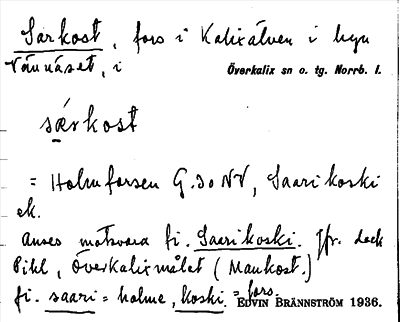 Särkost, fors i Kalixälven i byn
Vännäset, i Överkalix sn o. tg. Norrb. l.
sǽrkost
= Holmforsen G.30 NV, Saarikoski
ek.
Anses motsvara fi. Saarikoski. Jfr. dock
Pihl, Överkalixmålet (Maukost.)
fi. saari = holme, koski = fors.
EDVIN BRÄNNSTRÖM 1936.